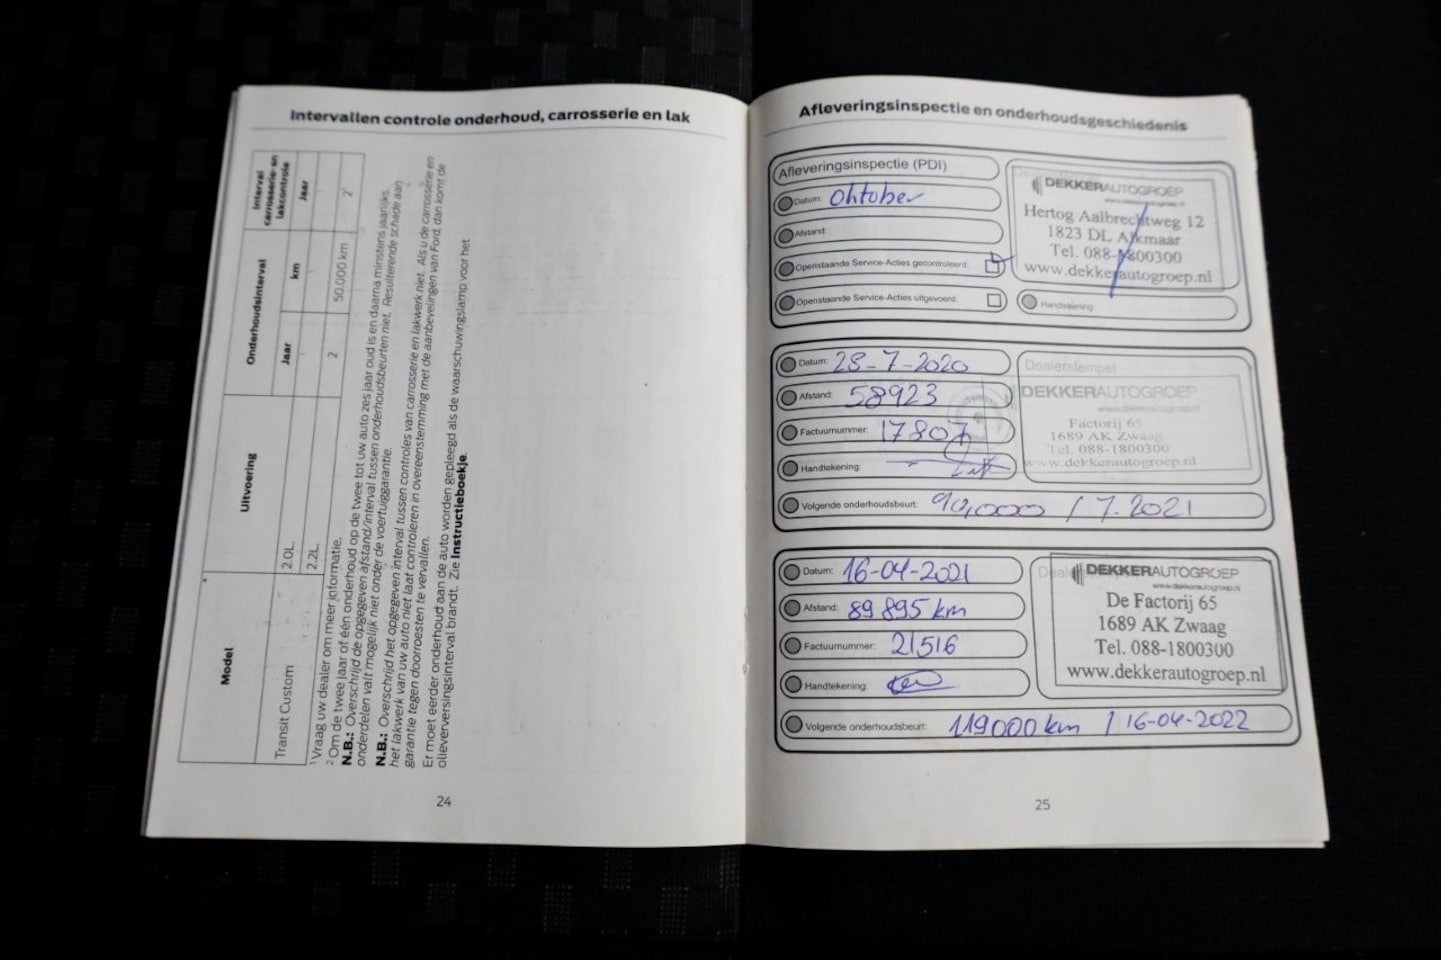 Intervallen controle onderhoud, carrosserie en lak
Model
Uitvoering
Onderhoudsinterval
Interval carrosserie- en lakcontrole
Jaar
km
Jaar
Transit Custom
2.0L.
2.2L.
2
50.000 km
2
¹ Vraag uw dealer om meer informatie.
² Om de twee jaar of één onderhoud op de twee tot uw auto zes jaar oud is en daarna minstens jaarlijks.
N.B.: Overschrijd de opgegeven afstand/interval tussen onderhoudsbeurten niet. Resulterende schade aan
onderdelen valt mogelijk niet onder de voertuiggarantie.
N.B.: Overschrijd het opgegeven interval tussen controles van carrosserie en lakwerk niet. Als u de carrosserie en
het lakwerk van uw auto niet laat controleren in overeenstemming met de aanbevelingen van Ford, dan komt de
garantie tegen doorroesten te vervallen.
Er moet eerder onderhoud aan de auto worden gepleegd als de waarschuwingslamp voor het
olieverversingsinterval brandt. Zie Instructieboekje.
24
Afleveringsinspectie en onderhoudsgeschiedenis
Afleveringsinspectie (PDI)
Datum: Oktober
Afstand:
Openstaande Service-Acties gecontroleerd:
Openstaande Service-Acties uitgevoerd:
DEKKERAUTOGROEP
Hertog Aalbrechtweg 12
1823 DL Alkmaar
Tel. 088-1800300
www.dekkerautogroep.nl
Handtekening:
Datum: 28-7-2020
Afstand: 58923
Factuurnummer: 17807
Handtekening:
Volgende onderhoudsbeurt: 90,000 / 7.2021
Dealerstempel
DEKKERAUTOGROEP
www.dekkerautogroep.nl
Factorij 65
1689 AK Zwaag
Tel. 088-1800300
www.dekkerautogroep.nl
Datum: 16-04-2021
Afstand: 89895 km
Factuurnummer: 21516
Handtekening:
Volgende onderhoudsbeurt: 119000 km / 16-04-2022
DEKKERAUTOGROEP
www.dekkerautogroep.nl
De Factorij 65
1689 AK Zwaag
Tel. 088-1800300
www.dekkerautogroep.nl
25